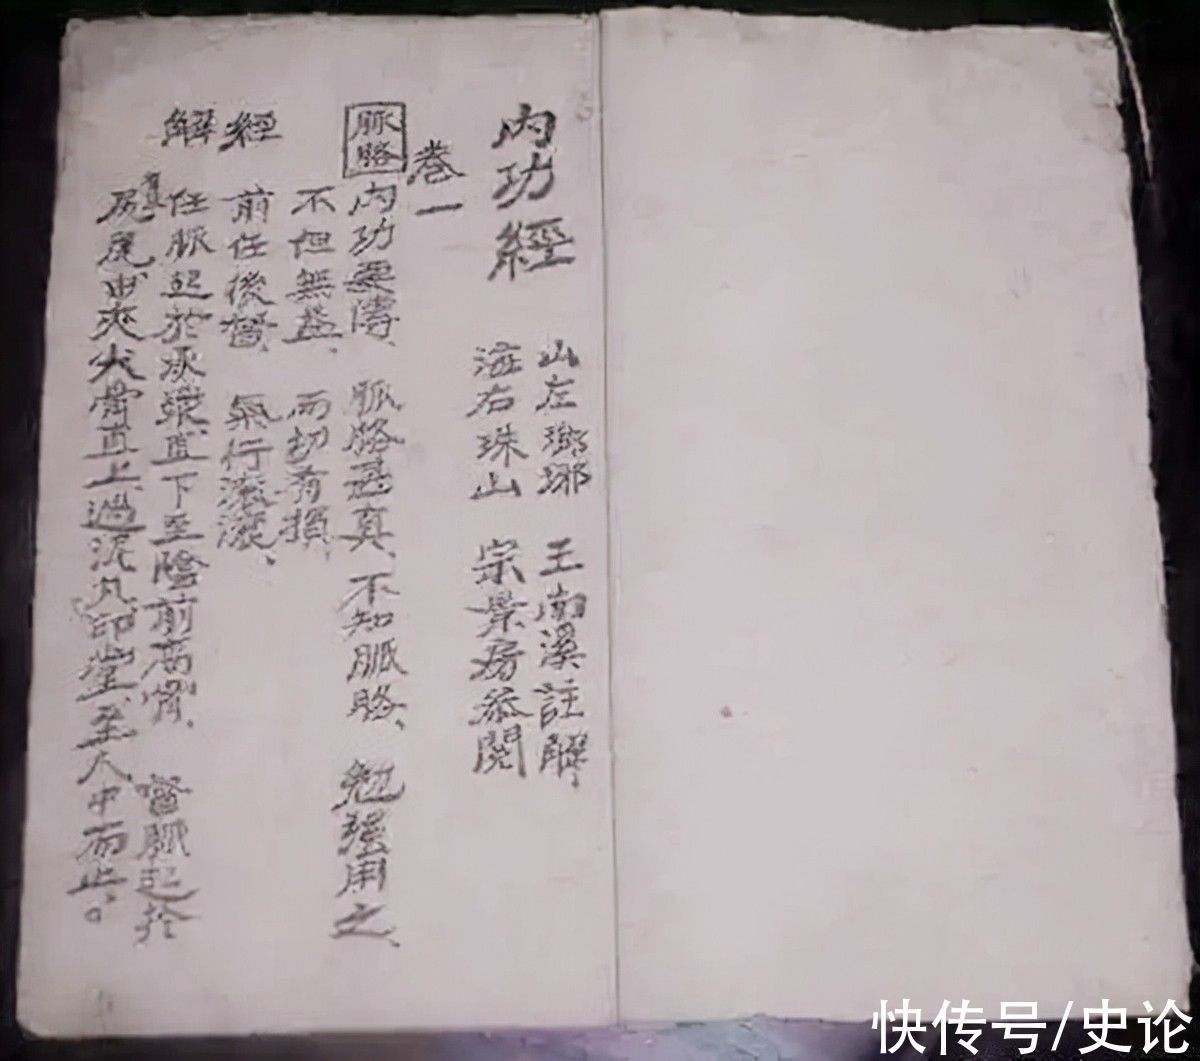 內功經
山左瑯琊 王南溪註解
海右珠山 宗景房叅閱
卷一
脈絡 內功要傳、脈絡甚真、不知脈絡、勉强用之、
不但無益、而切有損、
經 前任後督、氣行滚滚、
解 任脈起於承漿、直下至陰前高骨、督脈起於
尻尾、由夾脊骨直上、過泥丸、印堂、至人中而止。
快传号/史论